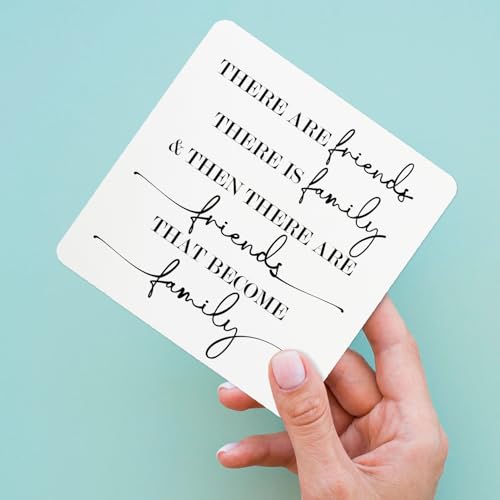 THERE ARE friends
THERE IS family
& THEN THERE ARE
friends
THAT BECOME
family